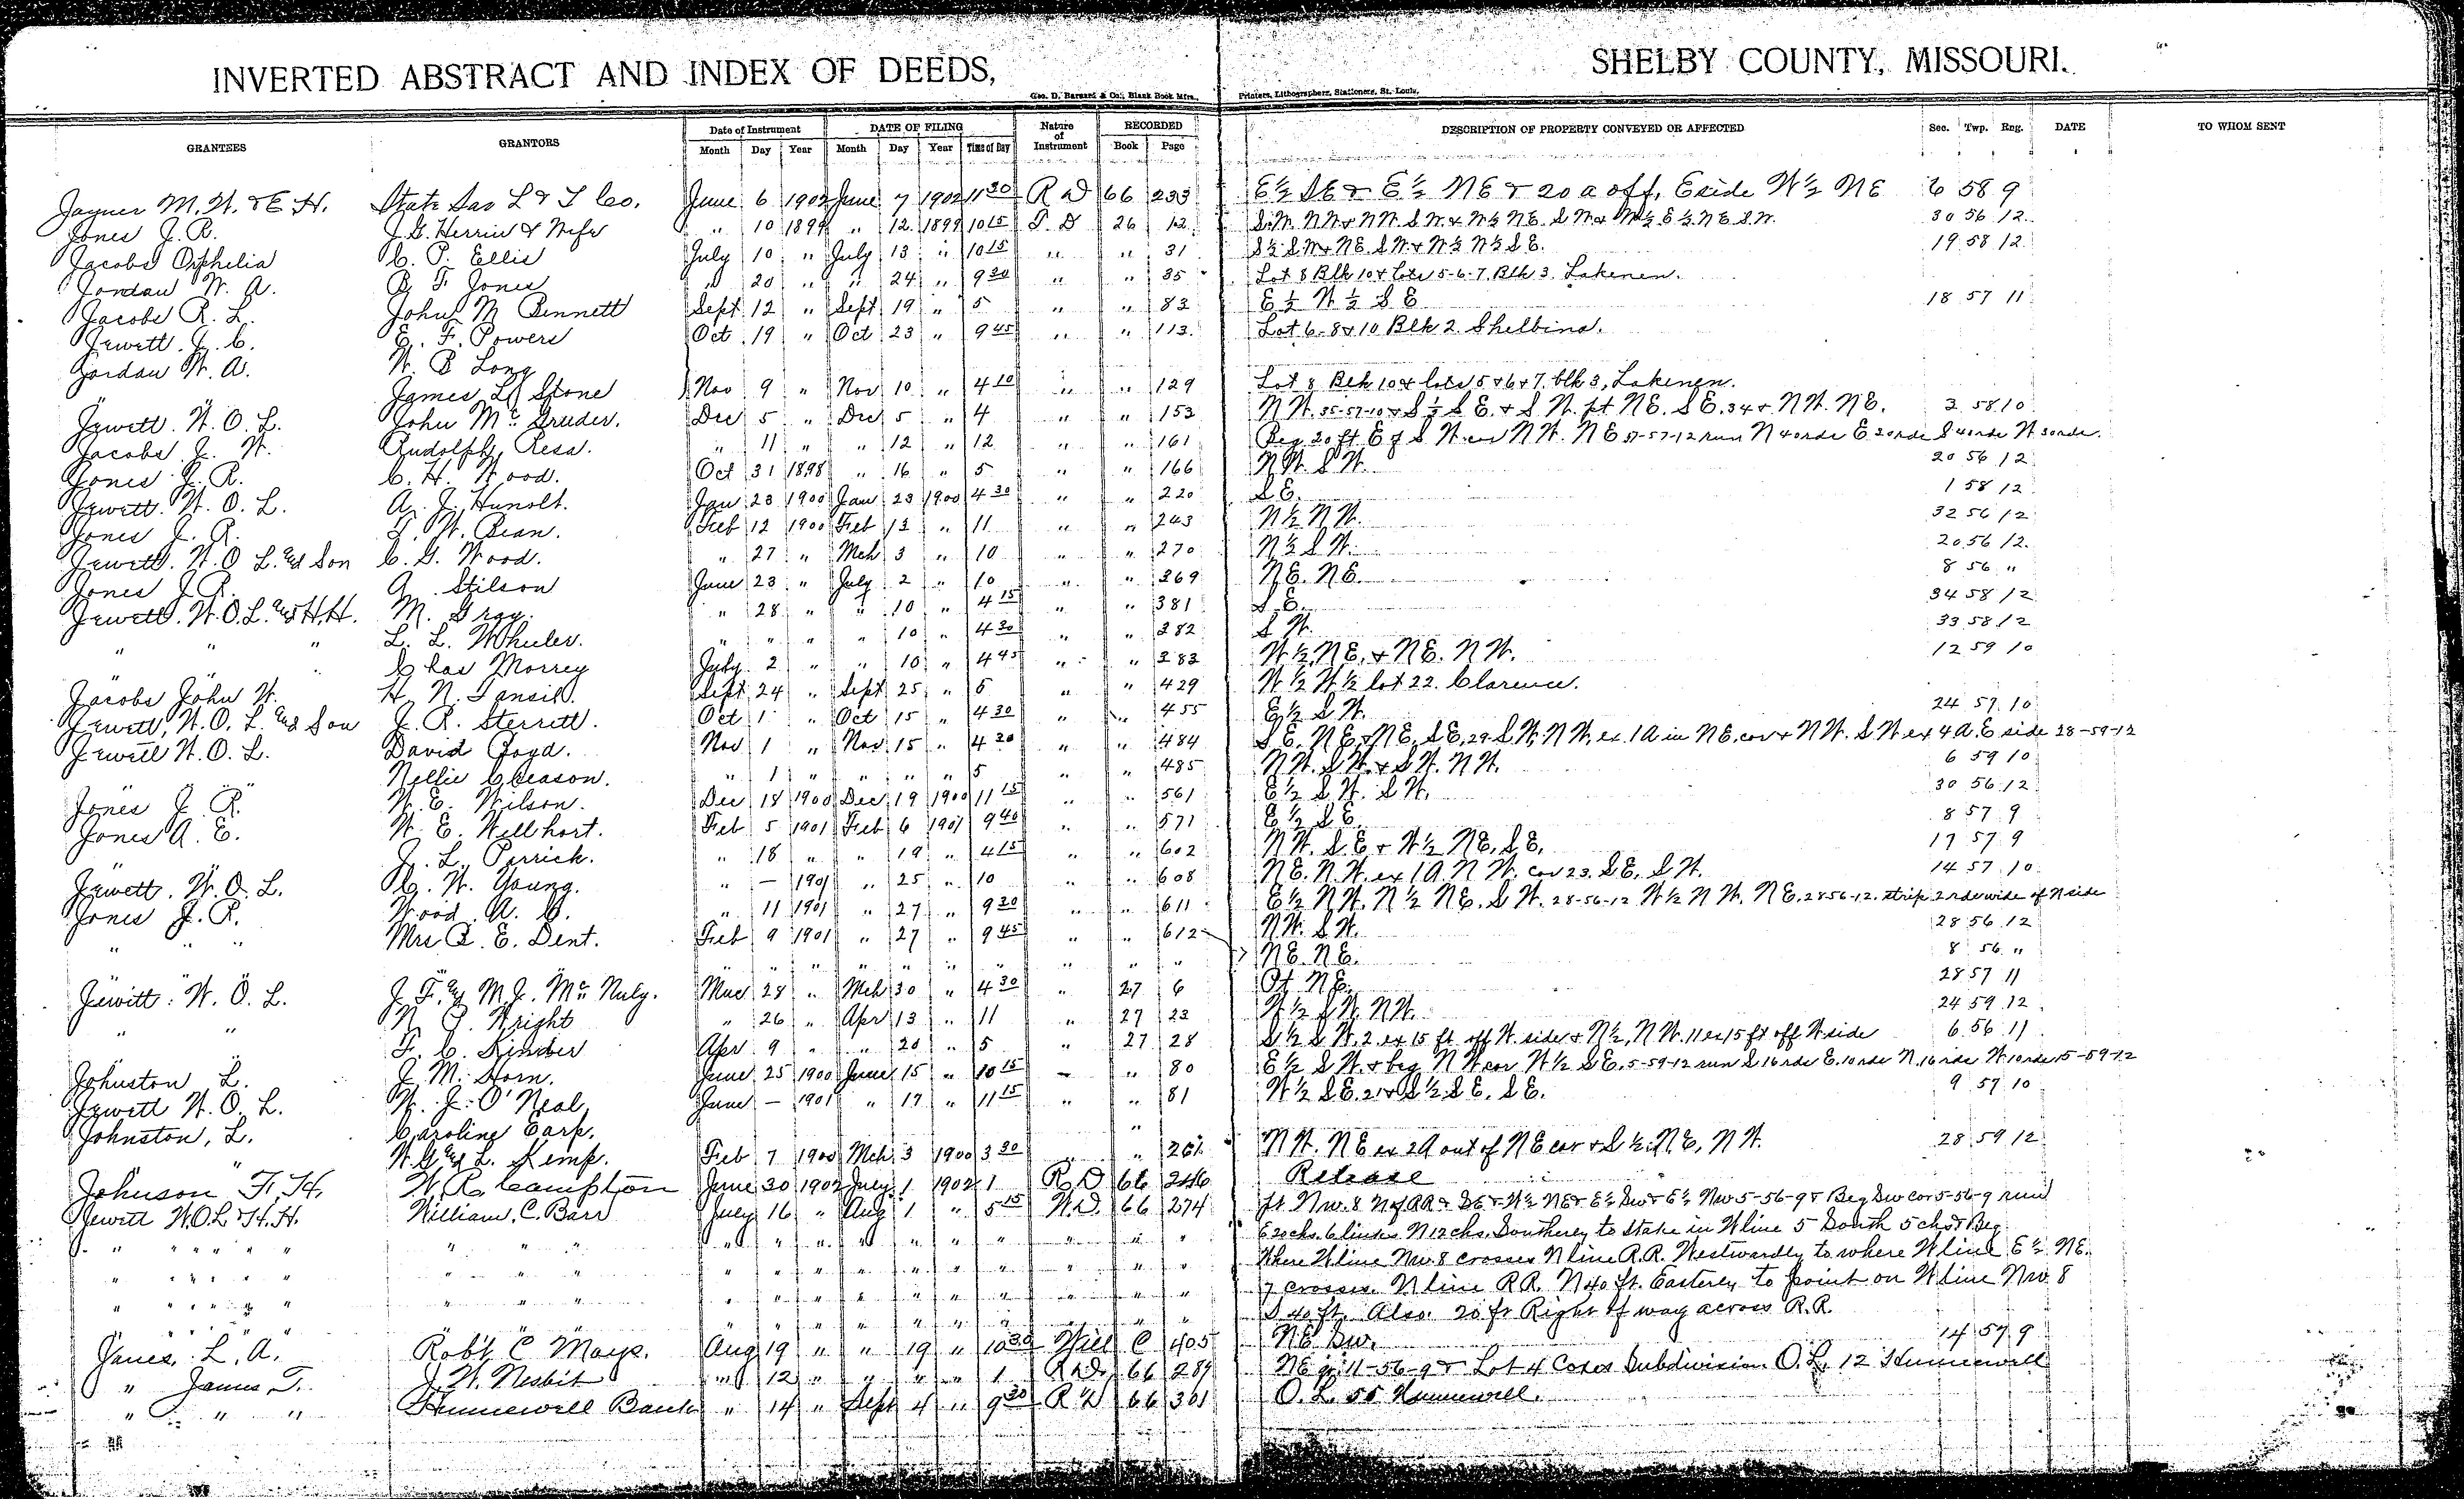 INVERTED ABSTRACT AND INDEX OF DEEDS, SHELBY COUNTY, MISSOURI.
Geo. D. Barnard & Co., Blank Book Mfrs., Printers, Lithographers, Stationers, St. Louis.
GRANTEES GRANTORS Date of Instrument DATE OF FILING Nature of Instrument RECORDED DESCRIPTION OF PROPERTY CONVEYED OR AFFECTED Sec. Twp. Rng. DATE TO WHOM SENT
Month Day Year Month Day Year Time of Day Book Page
Joyner M. W. & E. H. State Sav L & T Co. June 6 1902 June 7 1902 11 30 R D 66 233 E½ SE & E½ NE & 20 a off, E side W½ NE 6 58 9
Jones J. R. J. G. Herrin & Wife " 10 1899 " 12 1899 10 15 T. D 26 12 S.W. NW & NW. SW. & W½ NE. SW & W½ E½ NE. S.W. 30 56 12
Jacobs Orphelia C. P. Ellis July 10 " July 13 " 10 15 " " 31 S½ S.W & NE. SW. & N½ N½ S E. 19 58 12
Jordan W. A. B. F. Jones " 20 " " 24 " 9 30 " " 35 Lot 8 Blk 10 & lots 5-6-7. Blk 3. Lakenen.
Jacobs R. L. John M Bennett Sept 12 " Sept 19 " 5 " " 83 E½ W½ S E 18 57 11
Jewett. J. C. E. F. Powers Oct 19 " Oct 23 " 9 45 " " 113 Lot 6-8 & 10 Blk 2. Shelbina.
Jordan W. A. W. B Long
" James L Stone Nov 9 " Nov 10 " 4 10 " " 129 Lot 8 Blk 10 & lots 5 & 6 & 7. blk 3, Lakenen.
Jewett. W. O. L. John McGruder. Dec 5 " Dec 5 " 4 " " 153 N W. 35-57-10 & S½ S E. & S W. pt NE. S E. 34 & N W. NE. 3 58 10
Jacobs J. W. Rudolph Resa. " 11 " " 12 " 12 " " 161 Beg 20 ft E of S W. cor N W. NE 37-57-12 run N 40 rds E 30 rds S 40 rds W 30 rds.
Jones J. R. C. H. Wood. Oct 31 1898 " 16 " 5 " " 166 N W. S W. 20 56 12
Jewett. W. O. L. A. J. Hunolt. Jan 23 1900 Jan 23 1900 4 30 " " 220 S E. 1 58 12
Jones J. R. T. W. Bean. Feb 12 1900 Feb 13 " 11 " " 243 N½ N W. 32 56 12
Jewett. W. O L. & Son C. G. Wood. " 27 " Mch 3 " 10 " " 270 N½ S W. 20 56 12.
Jones J. R. A. Stilson June 23 " July 2 " 10 " " 369 NE. NE. 8 56 "
Jewett. W. O. L. & H. H. M. Gray. " 28 " " 10 " 4 15 " " 381 S. E. 34 58 12
" " " L. L. Wheeler. " " " " 10 " 4 30 " " 382 S W. 33 58 12
" Chas Morrey July 2 " " 10 " 4 45 " " 383 W½ NE. & NE. N W. 12 59 10
Jacobs John W. H. N. Tansil. Sept 24 " Sept 25 " 5 " " 429 W½ W½ lot 22. Clarence.
Jewett, W. O. L. & Son J. R. Sterrett. Oct 1 " Oct 15 " 4 30 " " 455 E½ S W. 24 57 10
Jewett W. O. L. David Boyd. Nov 1 " Nov 15 " 4 30 " " 484 S E. NE. & NE. S E. 29. S W. N W. ex. 1 A in NE. cor & N W. S W ex 4 A. E side 28-59-12
" Nellie Gleason. " 1 " " " " 5 " " 485 N W. S W. & S W. N W. 6 59 10
Jones J. R. W. E. Wilson. Dec 18 1900 Dec 19 1900 11 15 " " 561 E½ S W. S W. 30 56 12
Jones A. E. W. E. Willhort. Feb 5 1901 Feb 6 1901 9 40 " " 571 E½ S E. 8 57 9
" J. L. Perrick. " 18 " " 19 " 4 15 " " 602 N W. S E & W½ NE. S E. 17 57 9
Jewett. W. O. L. C. W. Young. " — 1901 " 25 " 10 " " 608 NE. N W. ex 1 A. N W. cor 23. S E. S W. 14 57 10
Jones J. R. Wood. A. C. " 11 1901 " 27 " 9 30 " " 611 E½ N W. N½ NE. S W. 28-56-12 W½ N W. NE. 28 56-12. strip 2 rds wide of N side
" " " Mrs B. E. Dent. Feb 9 1901 " 27 " 9 45 " " 612 N W. S W. 28 56 12
" " " " " " " " " " " " NE. NE. 8 56 "
Jewitt. W. O. L. J. F. & M. J. McNuly. Mar 28 " Mch 30 " 4 30 " 27 6 Pt NE. 28 57 11
" " N. J. Wright " 26 " Apr 13 " 11 " 27 23 W½ S W. N W. 24 59 12
" F. C. Kinder Apr 9 " " 20 " 5 " 27 28 S½ S W. 2. ex 15 ft off W. side & N½, N W. 11 ex 15 ft off W side 6 56 11
Johnston L. J. M. Horn. June 25 1900 June 15 " 10 15 " " 80 E½ S W. & beg N W cor W½ S E. 5-59-12 run S 16 rds E. 10 rds N. 16 rds W 10 rds 5-59-12
Jewett W. O. L. W. J. O'Neal June — 1901 " 17 " 11 15 " " 81 W½ S E. 21 & S½ S E. S E. 9 57 10
Johnston, L. Caroline Earp. "
" W. G. & L. Kemp. Feb 7 1900 Mch 3 1900 3 30 " 261 N W. NE ex 2 A out of NE cor & S½ NE, N W. 28 59 12
Johnson F. H. W. R. Campton June 30 1902 July 1 1902 1 R D 66 246 Release
Jewett W. O. L & H. H. William. C. Barr July 16 " Aug 1 " 5 15 W. D. 66 274 pt Nw. 8 N of RR & SE & W½ NE & E½ Sw & E½ Nw 5-56-9 & Beg Sw cor 5-56-9 run
" " " " " " " " " " " " " " " E 20 chs. 6 links N 12 chs. Southerly to stake in W line 5 South 5 chs & Beg
" " " " " " " " " " " " " " " Where W line Nw. 8 crosses N line R.R. Westwardly to where W line E½ NE.
" " " " " " " " " " " " " " " 7 crosses N line RR. N 40 ft. Easterly to point on W line Nw. 8
" " " " " " " " " " " " " " " S 40 ft. Also 20 ft Right of way across R.R.
Janes, L. A. Robt C Mays. Aug 19 " " 19 " 10 30 Will C 405 NE Sw. 14 57 9
" James T. J. W. Nesbit " 12 " " " " 1 R D. 66 289 NE qr 11-56-9 & Lot 4 Coxes Subdivision O. L. 12 Hunnewell
" " " Hunnewell Bank " 14 " Sept 4 " 9 30 R D 66 301 O. L. 55 Hunnewell.